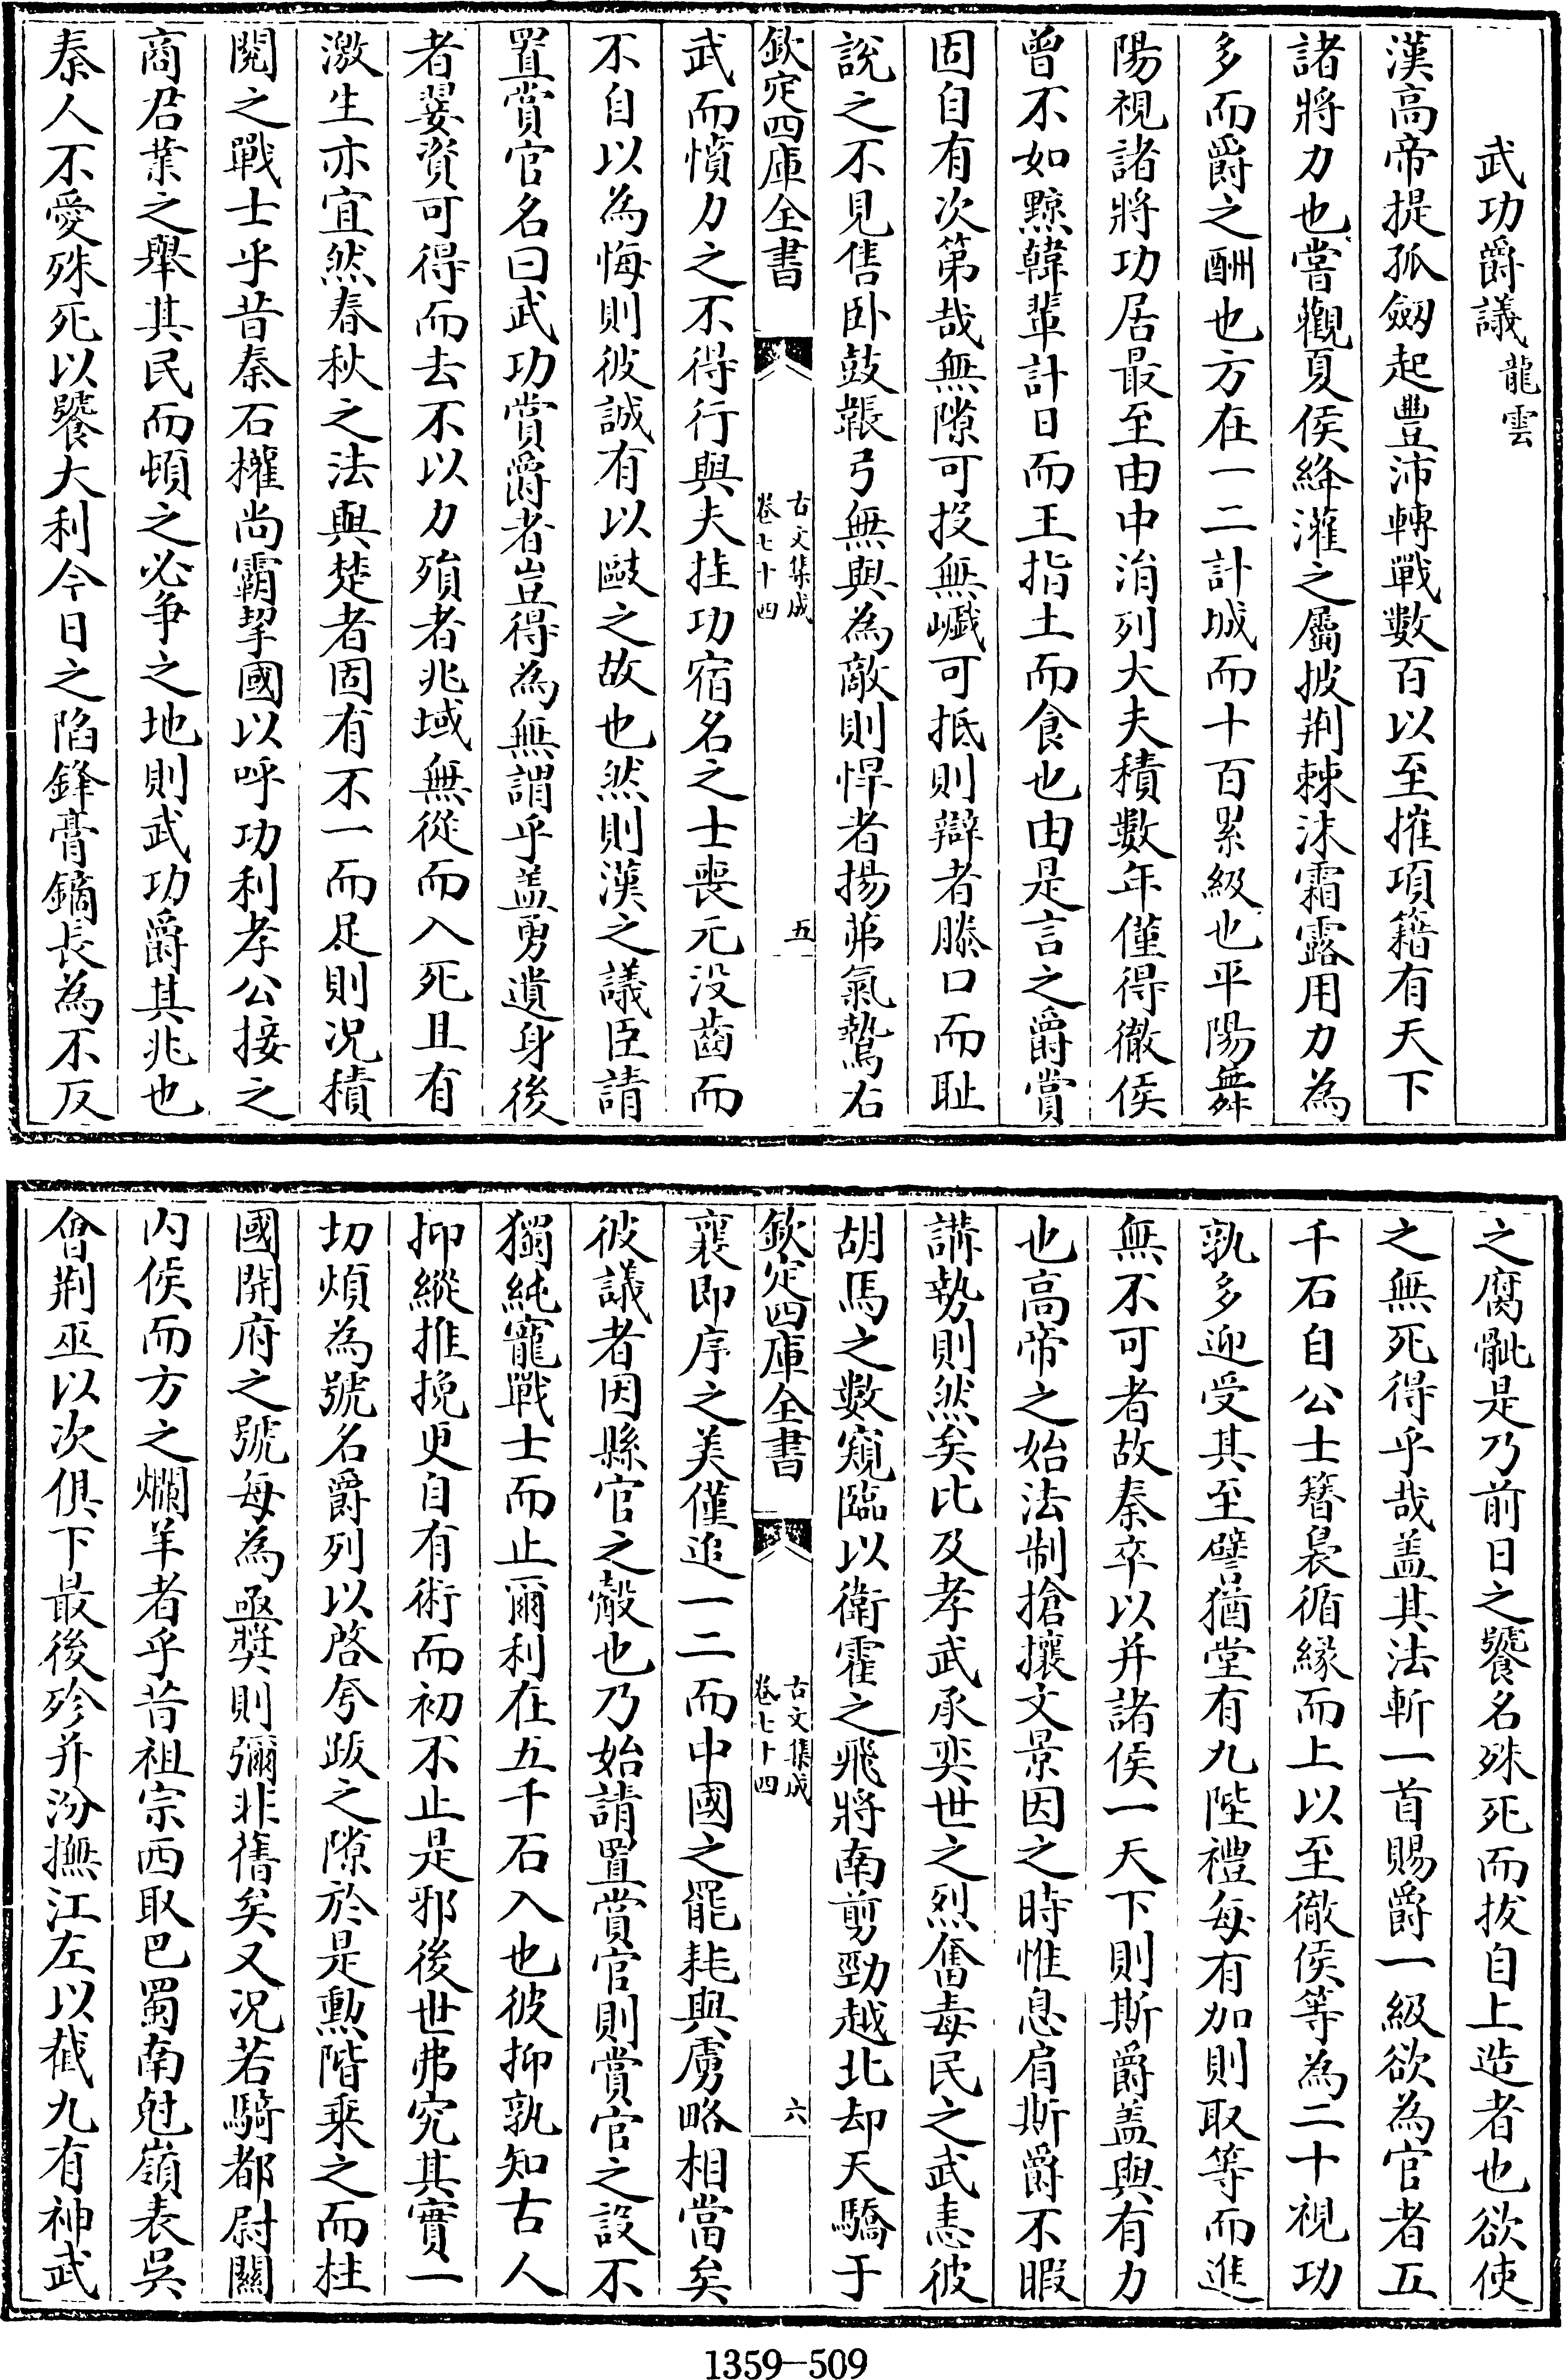 武功爵議龍雲
漢高帝提孤劒起豐沛轉戰數百以至摧項籍有天下
諸將力也嘗觀夏侯絳灌之屬披荆棘沐霜露用力為
多而爵之酬也方在一二計城而十百累級也平陽舞
陽視諸將功居最至由中涓列大夫積數年僅得徹侯
曾不如黥韓輩計日而王指土而食也由是言之爵賞
固自有次第哉無隙可投無巇可抵則辯者滕口而耻
說之不見售卧鼓韔弓無與為敵則悍者揚茀氣鷙右
欽定四庫全書
古文集成
卷七十四
五
武而憤力之不得行與夫挂功宿名之士喪元没齒而
不自以為悔則彼誠有以敺之故也然則漢之議臣請
置賞官名曰武功賞爵者豈得為無謂乎盖勇遺身後
者翣資可得而去不以力殞者兆域無從而入死且有
激生亦宜然春秋之法與楚者固有不一而足則况積
閱之戰士乎昔秦石㩲尚霸挈國以呼功利孝公接之
商君業之舉其民而頓之必争之地則武功爵其兆也
秦人不愛殊死以饕大利今日之陷鋒膏鏑長為不反
之腐骴是乃前日之饕名殊死而拔自上造者也欲使
之無死得乎哉盖其法斬一首賜爵一級欲為官者五
千石自公士簪裊循緣而上以至徹侯等為二十視功
孰多迎受其至譬猶堂有九陛禮每有加則取等而進
無不可者故秦卒以并諸侯一天下則斯爵盖與有力
也高帝之始法制搶攘文景因之時惟息肩斯爵不暇
講勢則然矣比及孝武承奕世之烈奮毒民之武恚彼
胡馬之數窺臨以衛霍之飛將南剪勁越北却天驕于
欽定四庫全書
古文集成
卷七十四
六
襄即序之美僅追一二而中國之罷耗與虜略相當矣
彼議者因縣官之㲉也乃始請置賞官則賞官之設不
獨純寵戰士而止爾利在五千石入也彼抑孰知古人
抑縱推挽更自有術而初不止是邪後世弗究其實一
切煩為號名爵列以啓夸䟦之隙於是勲階乘之而柱
國開府之號每為亟奬則彌非舊矣又况若騎都尉關
内侯而方之爛羊者乎昔祖宗西取巴蜀南尅嶺表吳
㑹荆巫以次俱下最後殄并汾撫江左以截九有神武
1359-509